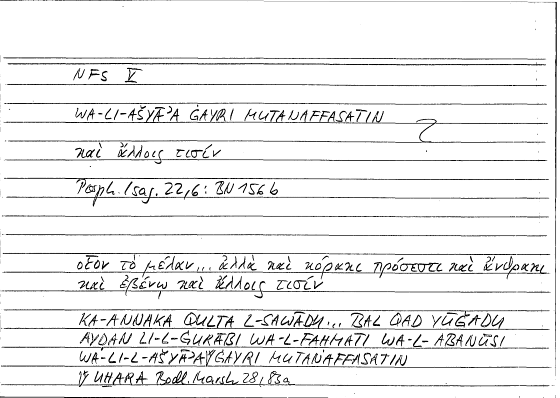 NFS V
WA-LI-AŠYĀʾA ĠAYRI MUTANAFFASATIN ?
καὶ ἄλλοις τισίν
Porph. Isag. 22,6: BN 156b
οἷον τὸ μέλαν... ἀλλὰ καὶ κόρακι πρόσεστι καὶ ἄνθρακι
καὶ ἐβένῳ καὶ ἄλλοις τισίν
KA-ANNAKA QULTA L-SAWĀDU... BAL QAD YŪǦADU
AYḌAN LI-L-ĠURĀBI WA-L-FAḤMATI WA-L-ABANŪSI
WA-LI-L-AŠYĀʾA ĠAYRI MUTANAFFASATIN
UḪARA Bodl. Marsh 28, 83a